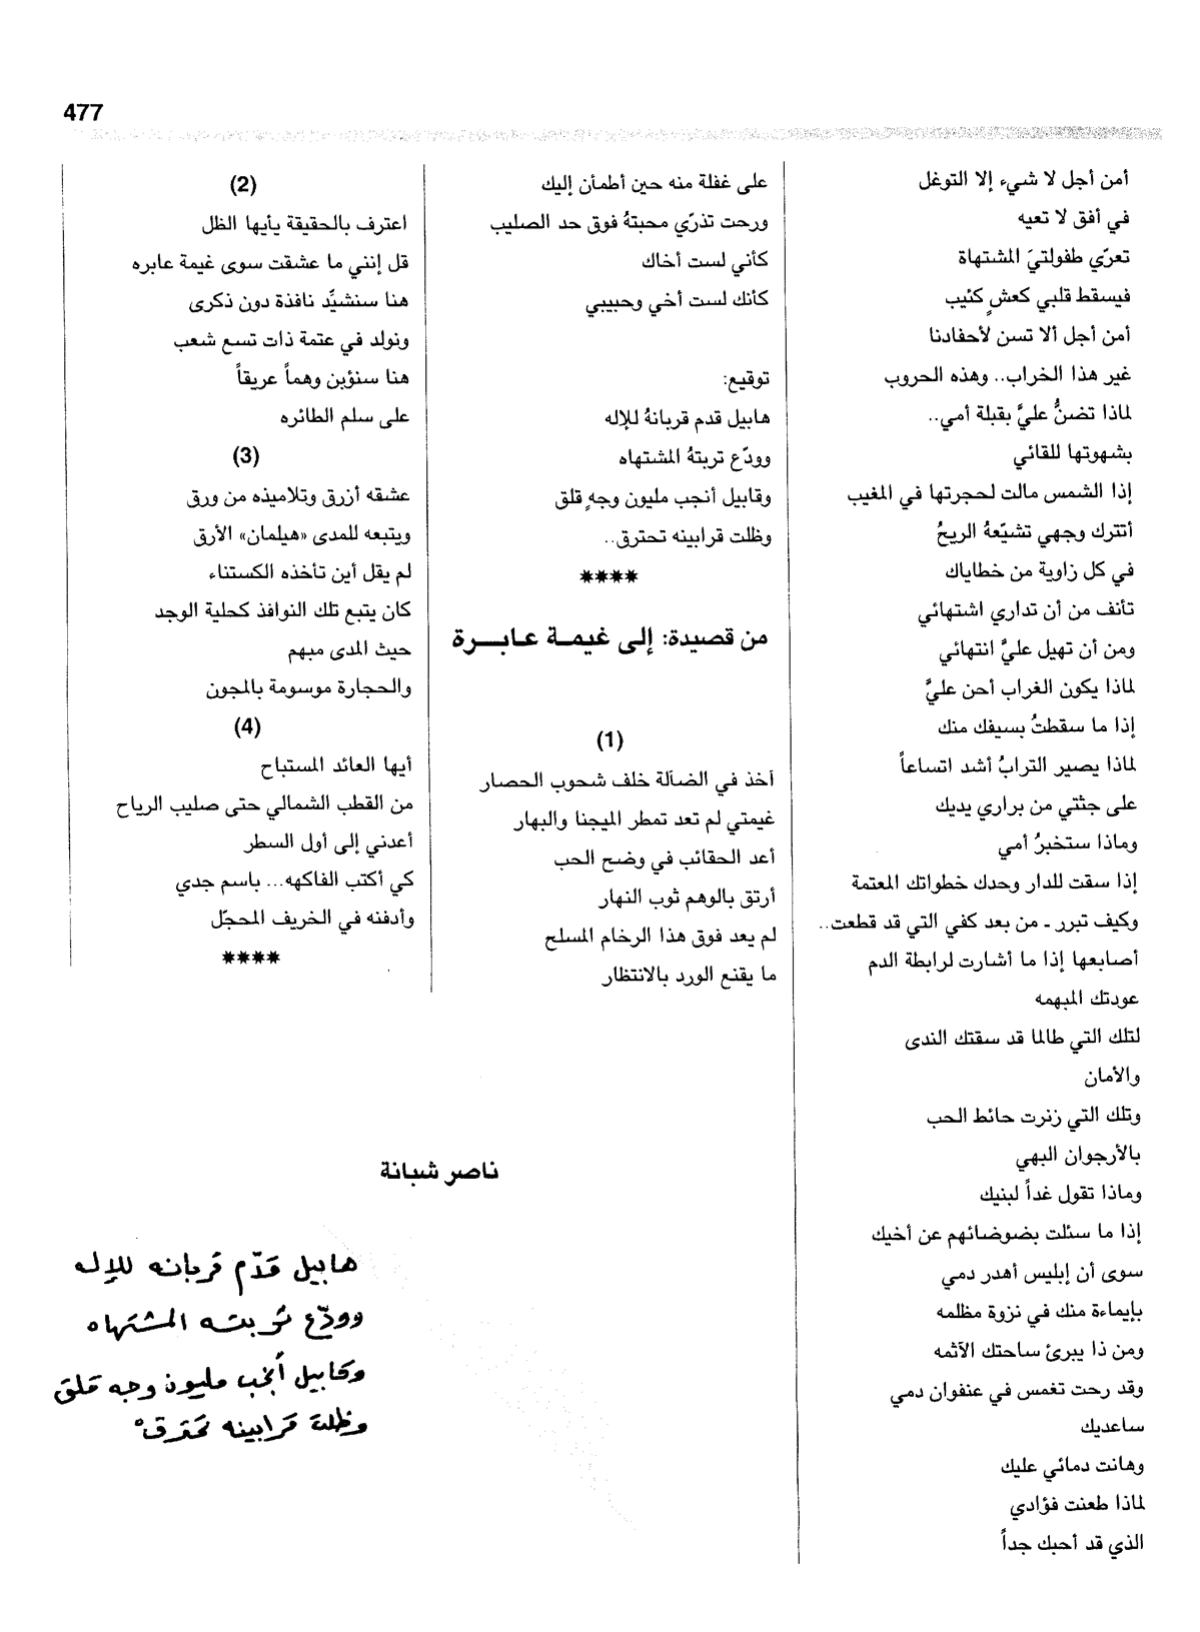 477
أمن أجل لا شيء إلا التوغل
في أفق لا تعيه
تعرّي طفولتيَ المشتهاة
فيسقط قلبي كعشٍ كئيب
أمن أجل ألا تسن لأحفادنا
غير هذا الخراب.. وهذه الحروب
لماذا تضنُّ عليَّ بقبلة أمي..
بشهوتها للقائي
إذا الشمس مالت لحجرتها في المغيب
أتترك وجهي تشيّعهُ الريحُ
في كل زاوية من خطاياك
تأنف من أن تداري اشتهائي
ومن أن تهيل عليَّ انتهائي
لماذا يكون الغراب أحن عليَّ
إذا ما سقطتُ بسيفك منك
لماذا يصير الترابُ أشد اتساعاً
على جثتي من براري يديك
وماذا ستخبرُ أمي
إذا سقت للدار وحدك خطواتك المعتمة
وكيف تبرر ـ من بعد كفي التي قد قطعت..
أصابعها إذا ما أشارت لرابطة الدم
عودتك المبهمه
لتلك التي طالما قد سقتك الندى
والأمان
وتلك التي زنرت حائط الحب
بالأرجوان البهي
وماذا تقول غداً لبنيك
إذا ما سئلت بضوضائهم عن أخيك
سوى أن إبليس أهدر دمي
بإيماءة منك في نزوة مظلمه
ومن ذا يبرئ ساحتك الآثمه
وقد رحت تغمس في عنفوان دمي
ساعديك
وهانت دمائي عليك
لماذا طعنت فؤادي
الذي قد أحبك جداً
على غفلة منه حين أطمأن إليك
ورحت تذرّي محبتهُ فوق حد الصليب
كأني لست أخاك
كأنك لست أخي وحبيبي
توقيع:
هابيل قدم قربانهُ للإله
وودّع تربتهُ المشتهاه
وقابيل أنجب مليون وجهٍ قلق
وظلت قرابينه تحترق..
****
من قصيدة: إلى غيمة عابرة
(1)
آخذ في الضآلة خلف شحوب الحصار
غيمتي لم تعد تمطر الميجنا والبهار
أعد الحقائب في وضح الحب
أرتق بالوهم ثوب النهار
لم يعد فوق هذا الرخام المسلح
ما يقنع الورد بالانتظار
(2)
اعترف بالحقيقة يأيها الظل
قل إنني ما عشقت سوى غيمة عابره
هنا سنشيِّد نافذة دون ذكرى
ونولد في عتمة ذات تسع شعب
هنا سنؤبن وهماً عريقاً
على سلم الطائره
(3)
عشقه أزرق وتلاميذه من ورق
ويتبعه للمدى «هيلمان» الأرق
لم يقل أين تأخذه الكستناء
كان يتبع تلك النوافذ كحلية الوجد
حيث المدى مبهم
والحجارة موسومة بالمجون
(4)
أيها العائد المستباح
من القطب الشمالي حتى صليب الرياح
أعدني إلى أول السطر
كي أكتب الفاكهه... باسم جدي
وأدفنه في الخريف المحجّل
****
ناصر شبانة
هابيل قدّم قربانه للإله
وودّع تربته المشتهاه
وقابيل أنجب مليون وجه قلق
وظلت قرابينه تحترقْ